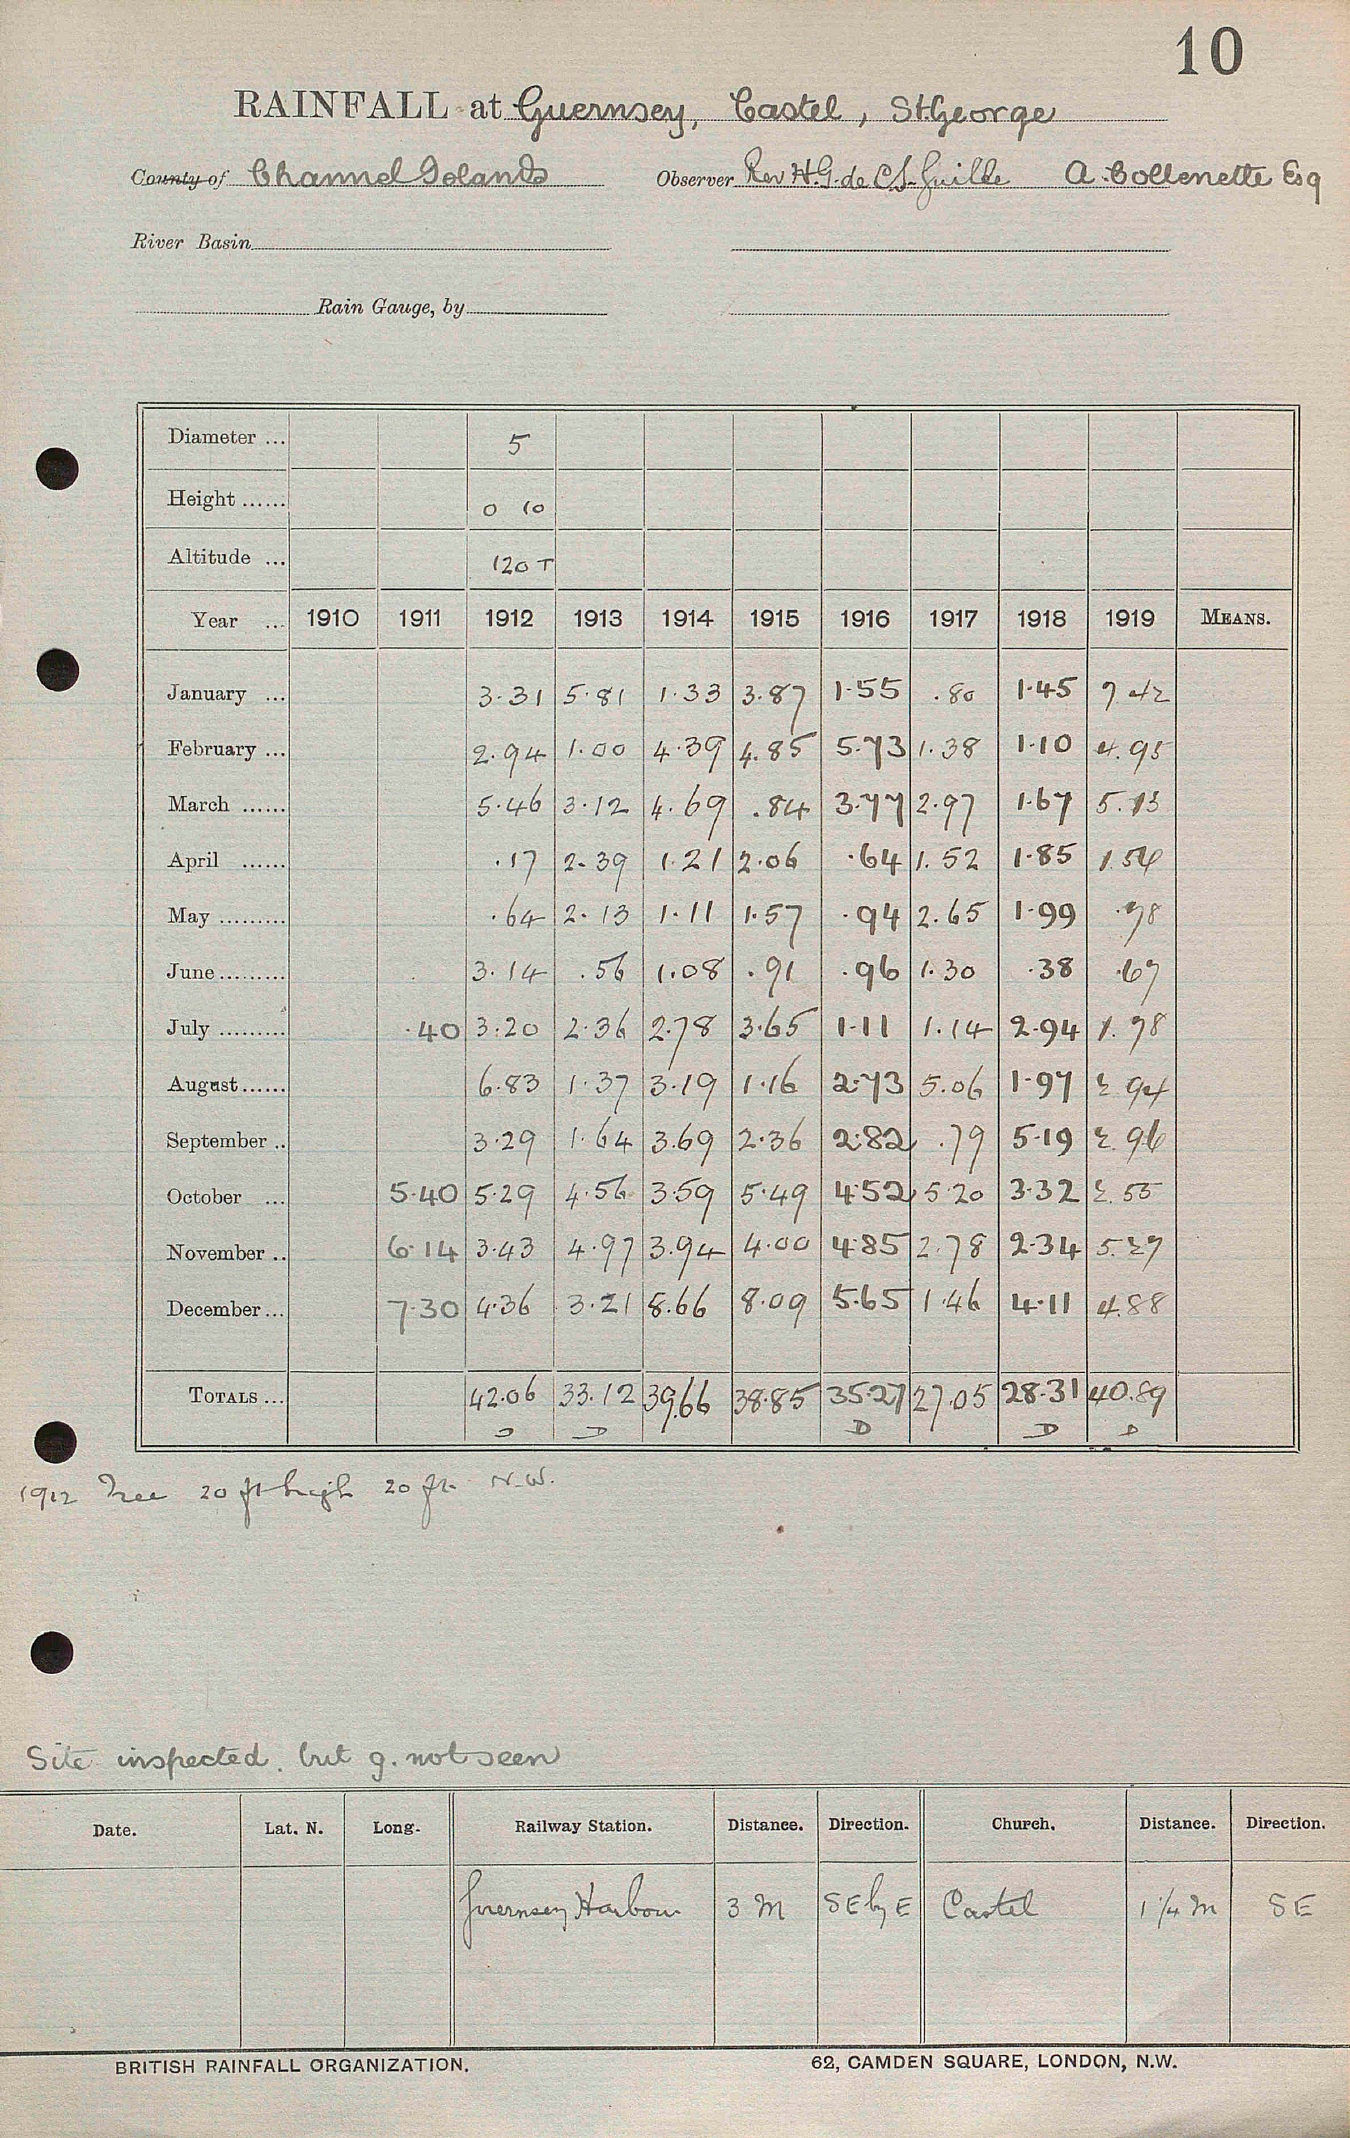 10
RAINFALL at Guernsey, Castel, St.George
County of Channel Islands Observer Rev H.G. de C. S. Guille A. Collenette Esq
River Basin
Rain Gauge, by
Diameter ... 5
Height ...... 0 10
Altitude ... 120 T
Year ... 1910 1911 1912 1913 1914 1915 1916 1917 1918 1919 MEANS.
January ... 3.31 5.81 1.33 3.87 1.55 .80 1.45 7.42
February ... 2.94 1.00 4.39 4.85 5.73 1.38 1.10 4.95
March ...... 5.46 3.12 4.69 .84 3.77 2.97 1.67 5.13
April ...... .17 2.39 1.21 2.06 .64 1.52 1.85 1.56
May ......... .64 2.13 1.11 1.57 .94 2.65 1.99 .78
June ......... 3.14 .56 1.08 .91 .96 1.30 .38 .67
July ......... .40 3.20 2.36 2.78 3.65 1.11 1.14 2.94 1.78
August ...... 6.83 1.37 3.19 1.16 2.73 5.06 1.97 2.94
September .. 3.29 1.64 3.69 2.36 2.82 .79 5.19 2.96
October ... 5.40 5.29 4.56 3.59 5.49 4.52 5.20 3.32 2.55
November .. 6.14 3.43 4.97 3.94 4.00 4.85 2.78 2.34 5.27
December ... 7.30 4.36 3.21 8.66 8.09 5.65 1.46 4.11 4.88
TOTALS ... 42.06 33.12 39.66 38.85 35.27 27.05 28.31 40.89
D D D D D
1912 Tree 20 ft high 20 ft. N.W.
Site inspected. but g. not seen
Date. Lat. N. Long. Railway Station. Distance. Direction. Church. Distance. Direction.
Guernsey Harbour 3 M SE by E Castel 1 1/4 M SE
BRITISH RAINFALL ORGANIZATION. 62, CAMDEN SQUARE, LONDON, N.W.